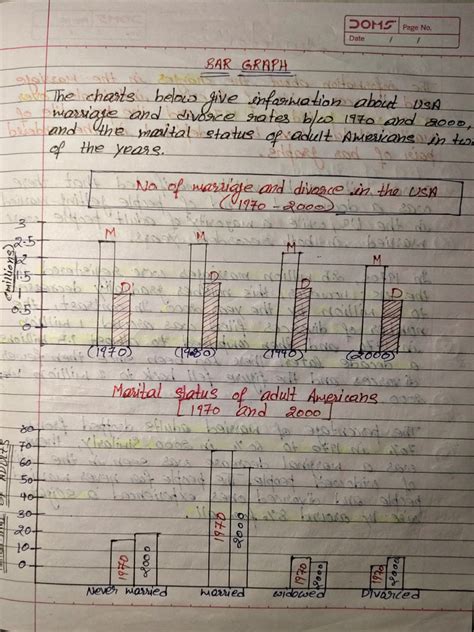 DOMS
Page No.
Date / /
BAR GRAPH
The charts below give information about USA
marriage and divorce rates b/w 1970 and 2000,
and the marital status of adult Americans in two
of the years.
No of marriage and divorce in the USA
(1970 - 2000)
3
2.5
2
1.5
1
0.5
0
(millions)
M
D
M
D
M
D
M
D
(1970)
(1980)
(1990)
(2000)
Marital status of adult Americans
[1970 and 2000]
80
70
60
50
40
30
20
10
0
of adults
1970
2000
1970
2000
1970
2000
1970
2000
Never married
married
widowed
Divorced